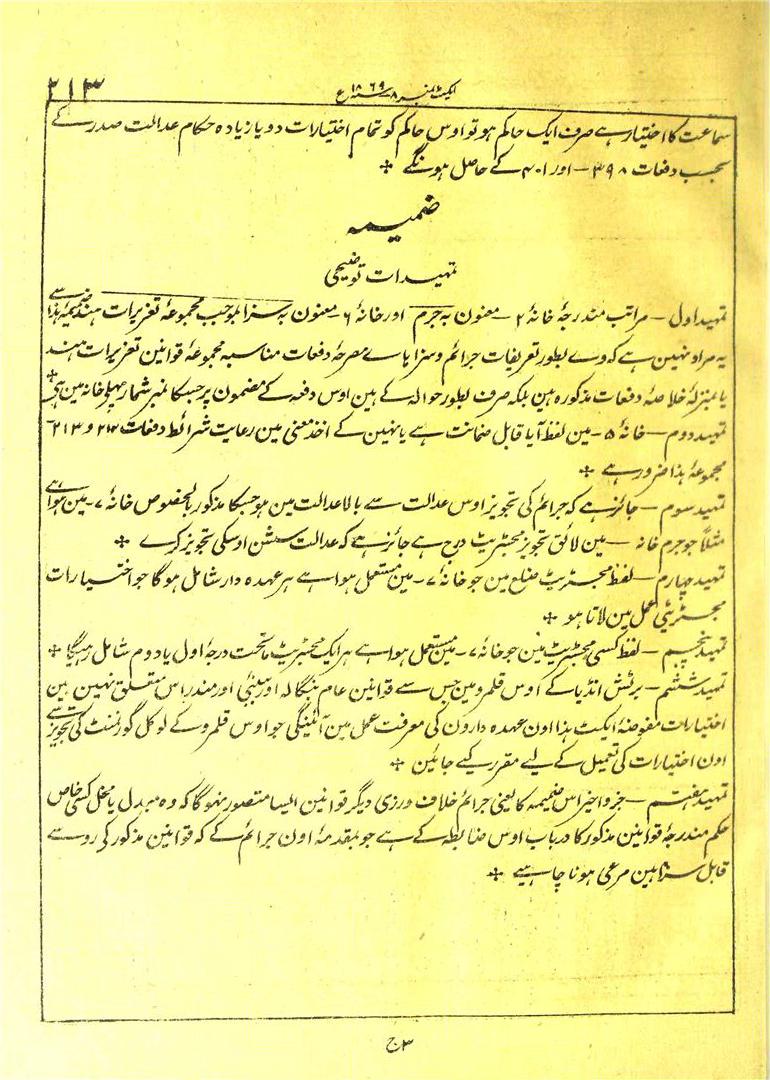 ایکٹ نمبر ۸ سنہ ۱۸۶۹ع
۲۱۳
سماعت کا اختیار ہے صرف ایک حاکم ہو تو اوس حاکم کو تمام اختیارات دو یا زیادہ حکام عدالت صدر کے
بحسب دفعات ۳۹۸ – اور ۴۰۱ کے حاصل ہونگے
ضمیمہ
تمہیدات توضیحی
تمہید اول – مراتب مندرجۂ خانۂ ۲ – معنون بہ جرم اور خانۂ ۶ – معنون بہ سزا بموجب مجموعۂ تعزیرات ہند ضمیمۂ ہذا سے
یہ مراد نہین ہے کہ وے بطور تعریفات جرائم و سزا ہاے مصرحۂ دفعات مناسبہ مجموعۂ قوانین تعزیرات ہند
یا بمنزلۂ خلاصۂ دفعات مذکورہ ہین بلکہ صرف بطور حوالہ کے ہین اوس دفعہ کے مضمون پر جسکا نمبر شمار پہلے خانہ مین ہی
تمہید دوم – خانۂ ۵ – مین لفظ آیا قابل ضمانت ہے یا نہین کے اخذ معنی مین رعایت شرائط دفعات ۲۱۲ و ۲۱۳
مجموعۂ ہذا ضرور ہے
تمہید سوم – جائز ہے کہ جرائم کی تجویز اوس عدالت سے بالا عدالت مین ہو جسکا مذکور بالخصوص خانۂ ۷ – مین ہوا ہے
مثلاً جو جرم خانہ – مین لائق تجویز مجسٹریٹ درج ہے جائز ہے کہ عدالت سشن اوسکی تجویز کرے
تمہید چہارم – لفظ مجسٹریٹ ضلع مین جو خانۂ ۷ – مین مستعمل ہوا ہے ہر عہدہ دار شامل ہوگا جو اختیارات
مجسٹریٹی عمل مین لاتا ہو
تمہید پنجم – لفظ کسی مجسٹریٹ مین جو خانۂ ۷ – مین مستعمل ہوا ہے ہر ایک مجسٹریٹ ماتحت درجۂ اول یا دوم شامل رہیگا
تمہید ششم – برٹش انڈیا کے اوس قلمرو مین جس سے قوانین عام بنگالہ اور بمبئی اور مندراس متعلق نہین ہین
اختیارات مفوضۂ ایکٹ ہذا اون عہدہ دارون کی معرفت عمل مین آئینگی جو اوس قلمرو کے لوکل گورنمنٹ کی تجویز سے
اون اختیارات کی تعمیل کے لیے مقرر کیے جائین
تمہید ہفتم – جزو اخیر اس ضمیمہ کا یعنی جرائم خلاف ورزی دیگر قوانین ایسا متصور نہوگا کہ وہ مبدل یا مخل کسی خاص
حکم مندرجۂ قوانین مذکور کا درباب اوس ضابطہ کے ہے جو بمقدمۂ اون جرائم کے کہ قوانین مذکور کی رو سے
قابل سزا ہین مرعی ہونا چاہیے
ج۳